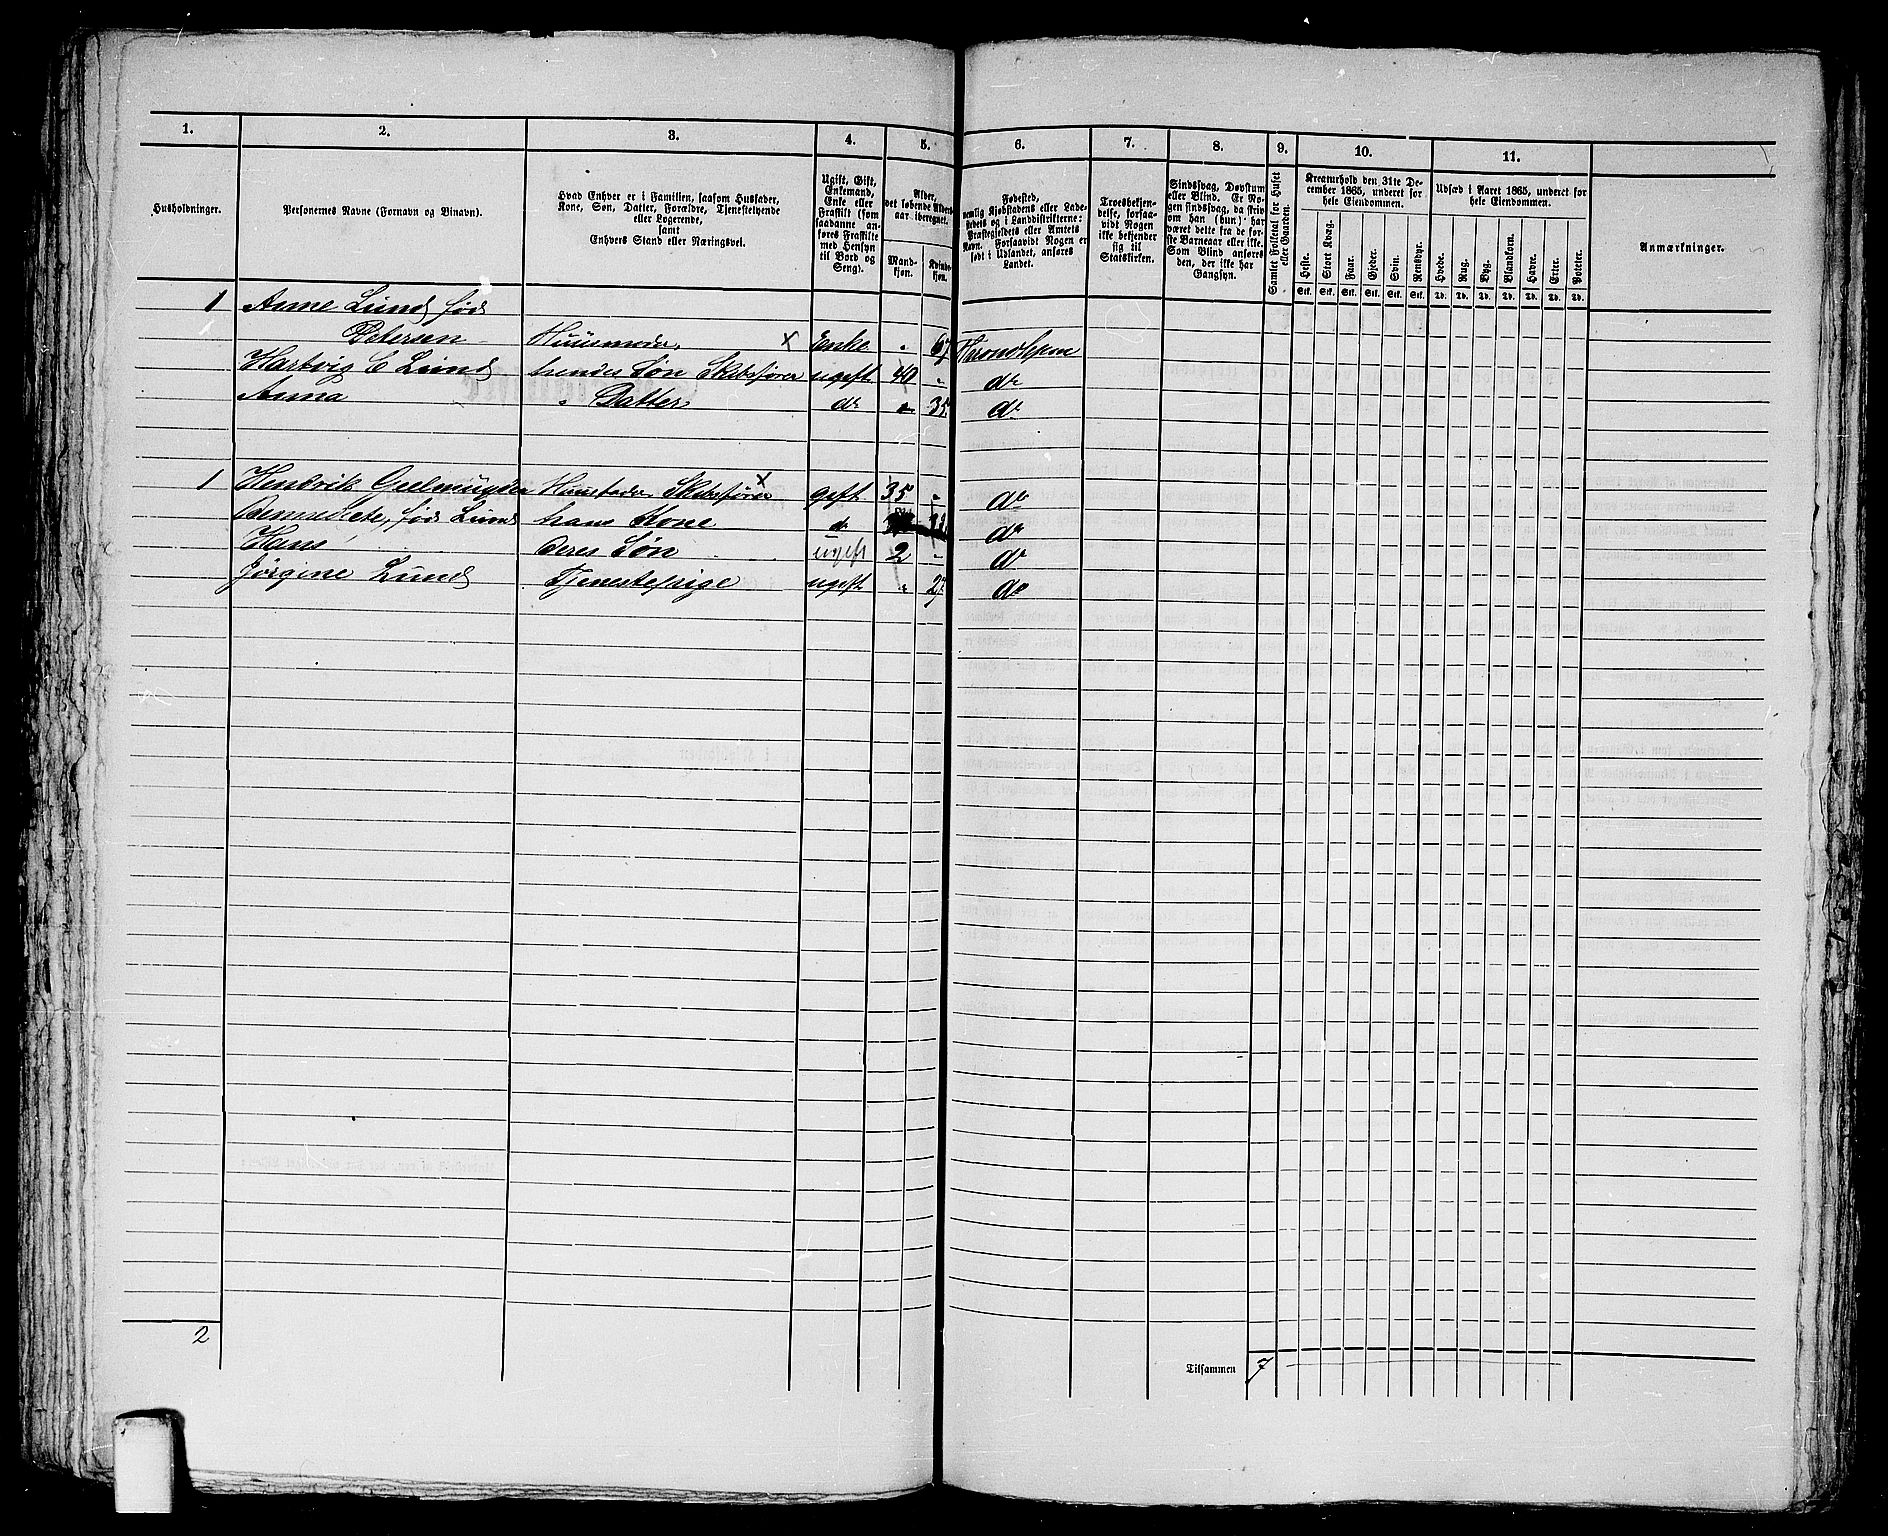 1. 2. 3. 4. 5. 6. 7. 8. 9. 10. 11.
Husholdninger.
Personernes Navne (Fornavn og Binavn).
Hvad Enhver er i Familien, saasom Husfader,
Kone, Søn, Datter, Forældre, Tjenestetyende
eller Logerende,
samt
Enhvers Stand eller Næringsvei.
Ugift, Gift,
Enkemand,
Enke eller
Fraskilt (som
saadanne an-
føres Fraskilte
med Hensyn
til Bord og
Seng).
Alder,
det løbende Alders-
aar iberegnet.
Mand-
kjøn.
Kvinde-
kjøn.
Fødested,
nemlig Kjøbstadens eller Lade-
stedets og i Landdistrikterne:
Præstegjeldets eller Amtets
Navn. Forsaavidt Nogen er
født i Udlandet, anføres
Landet.
Troesbekjen-
delse, forsaa-
vidt Nogen
ikke bekjender
sig til
Statskirken.
Sindssvag, Døvstum
eller Blind. Er No-
gen sindssvag, da skriv
om han (hun) har
været dette fra de før-
ste Barneaar eller ikke.
Som Blind anføres
den, der ikke har
Gangsyn.
Samlet Folketal for Huset
eller Gaarden.
Kreaturhold den 31te De-
cember 1865, underet for
hele Eiendommen.
Heste. Stort Kvæg. Faar. Gjeder. Svin. Rensdyr.
Stk. Stk. Stk. Stk. Stk. Stk.
Udsæd i Aaret 1865, underet for
hele Eiendommen.
Hvede. Rug. Byg. Blandkorn. Havre. Erter. Poteter.
Td. Td. Td. Td. Td. Td. Td.
Anmærkninger.
1 Anne Lund, fød
Petersen Huusmoder x Enke " 67 Throndhjem
Hartvig C Lund hendes Søn Skibsfører ugift 40 " do
Anna " Datter do " 35 do
1 Hendrik Gelmuyden Huusfader Skibsfører x gift 35 " do
Bennedicte, fød Lund hans Kone do do
Hans deres Søn ugift 2 - do
Jørgine Lund Tjenestepige ugift " 27 do
2
Tilsammen 7